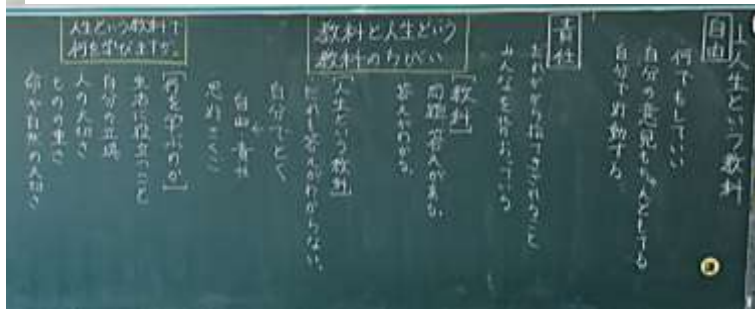 人生という教科
自由
何でもしていい
自分の意見もちゃんともてる
自分で行動する
責任
みんなを
教科と人生という
教科のちがい
[教科]
問題、答えがある
答えがわかる
[人生という教科]
だれも答えがわからない、
自分でとく
自由 責任
人生という教科で
何を学びますか。
[何を学ぶのか]
生活に役立つこと
自分の立場
人の大切さ
ものの重さ
命や自分の大切さ